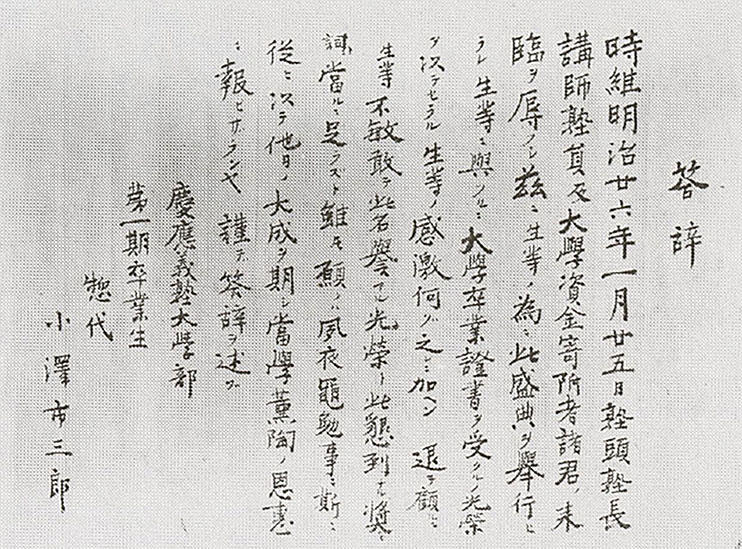 答辞
時維明治廿六年一月廿五日塾頭塾長
講師塾員及大學資金寄附者諸君ノ来
臨ヲ辱フシ茲ニ生等ノ為ニ此盛典ヲ舉行セ
ラレ生等ニ與フルニ大學卒業證書ヲ受クルノ光榮
ヲ以テセラル生等ノ感激何ゾ之ニ加ヘン退テ顧ミ
生等不敏敢テ此名譽アル光榮ト此懇到ナル奬
詞ニ當ルニ足ラズト雖モ願クハ夙夜黽勉事ニ斯ニ
從ヒ以テ他日ノ大成ヲ期シ當學薫陶ノ恩惠
ニ報ヒザランヤ謹テ答辞ヲ述ブ
慶應義塾大學部
第一期卒業生
惣代
小澤市三郎